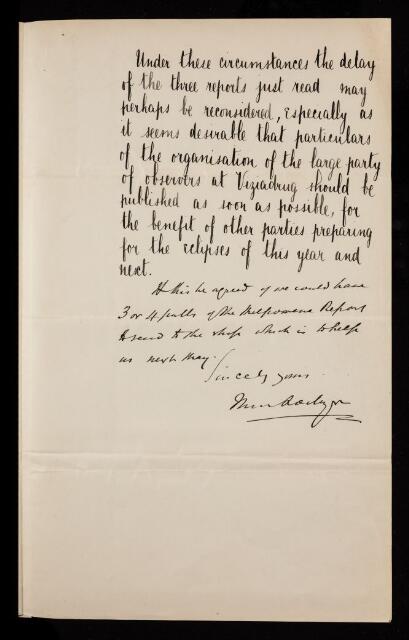 Under these circumstances the delay
of the three reports just read may
perhaps be reconsidered, especially as
it seems desirable that particulars
of the organisation of the large party
of observers at Viziadrug should be
published as soon as possible, for
the benefit of other parties preparing
for the eclipses of this year and
next.
If this be agreed if we could have
3 or 4 pulls of the Melpomene Report
to send to the ship which is to help
us next May.
Sincely yours